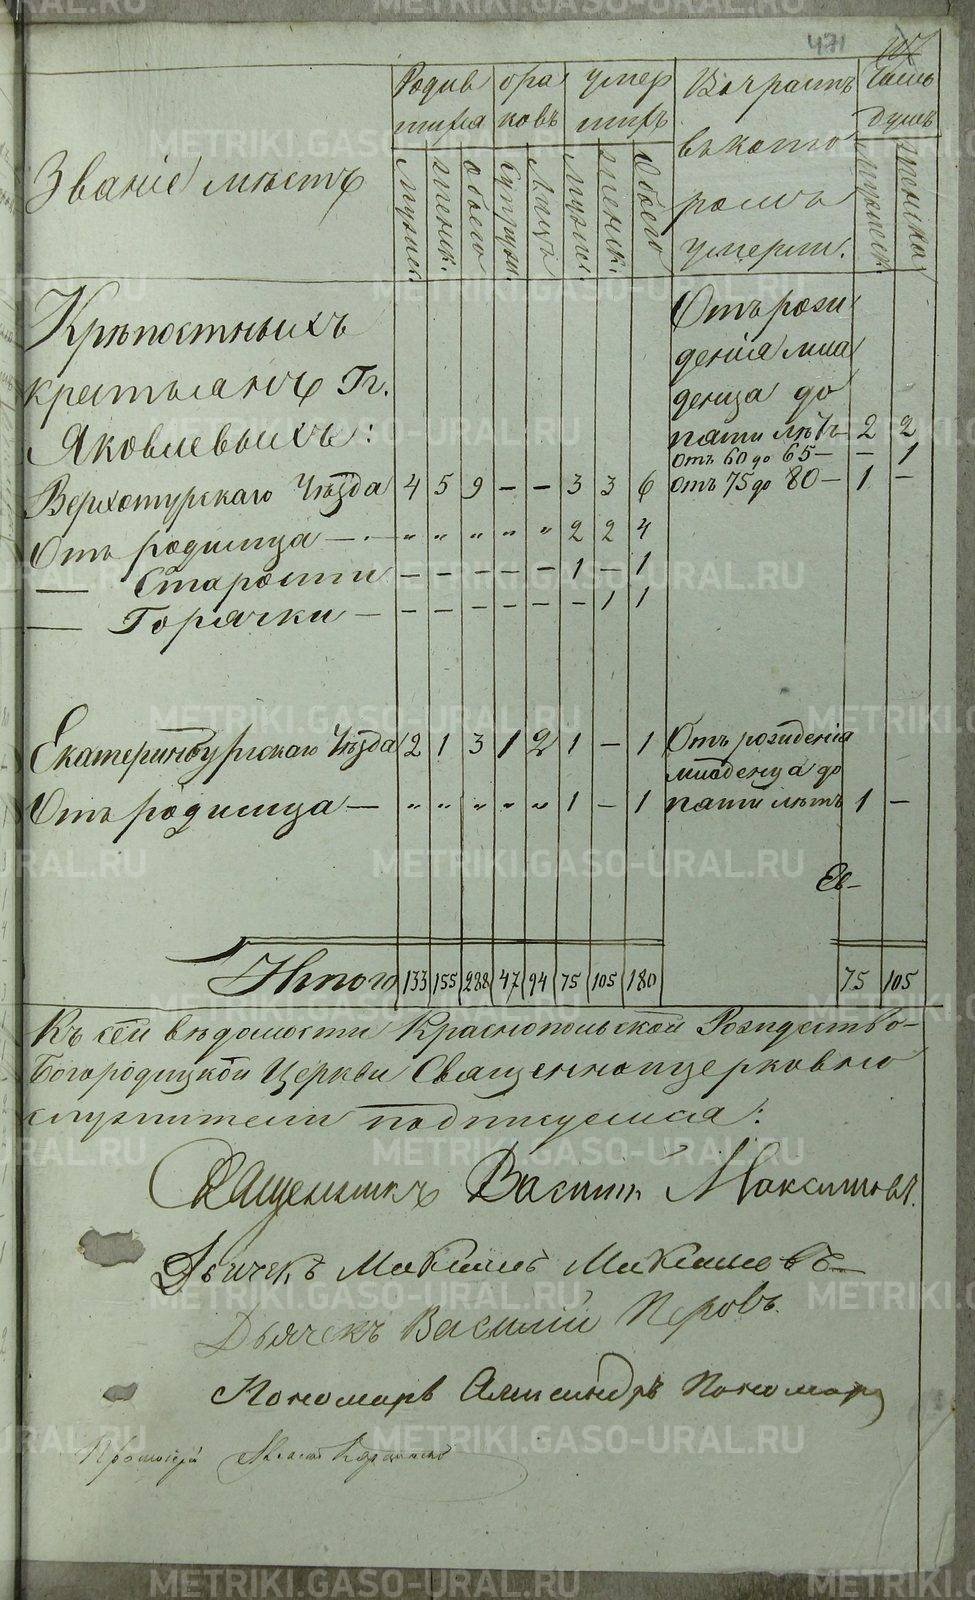 471
Званіе мѣстъ
Родив
шихся
бра
ковъ
умер
шихъ
Возрастъ
въ кото
ромъ
умерли.
Число
душъ
Мужеск.
Женск.
Обоего
Супруж.
Лицъ
Мужес.
Женск.
Обоего
Мужеск.
Женска
Крѣпостныхъ
крестьянъ Гг.
Яковлевыхъ:
Отъ рож
денія мла
денца до
пяти лѣтъ 2 2
отъ 60 до 65 — — 1
Верхотурскаго Уѣзда 4 5 9 — — 3 3 6 отъ 75 до 80 — 1 —
Отъ родимца — „ „ „ „ „ 2 2 4
— Старости — — — — — 1 — 1
— Горячки — — — — — — — 1 1
Екатеринбургскаго Уѣзда 2 1 3 1 2 1 — 1 Отъ рожденія
младенца до
Отъ родимца — „ „ „ „ „ 1 — 1 пяти лѣтъ 1 —
Итого 133 155 288 47 94 75 105 180 75 105
Къ сей вѣдомости Краснопольской Рождество-
Богородицкой Церкви Священноцерковно
служители подписуемся:
Священникъ Василій Максимовъ.
Дьячекъ Максимъ Максимовъ
Дьячекъ Василій Перовъ.
Пономарь Александръ Пономарев
Протоіерей
METRIKI.GASO-URAL.RU